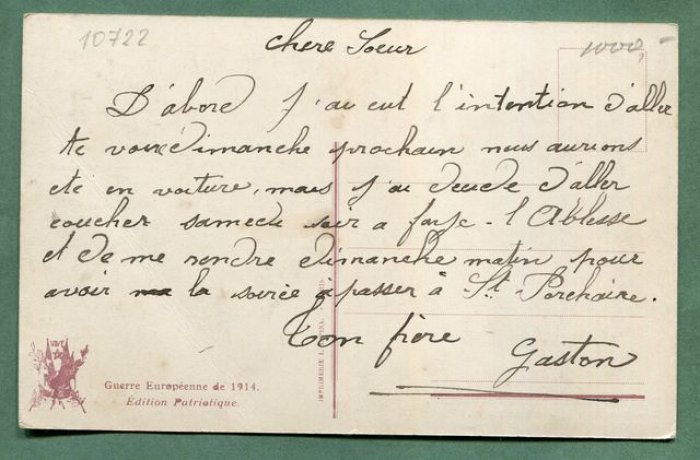 10722
chere Soeur
1000,-
D'abord j'ai eut l'intention d'aller
te voir dimanche prochain nous aurions
ete en voiture, mais j'ai decide d'aller
coucher samedi soir a l'Ablesse
et de me rendre dimanche matin pour
avoir la soirée à passer à St Porchaire.
Ton frère
Gaston
Guerre Européenne de 1914.
Edition Patriotique.
IMPRIMERIE